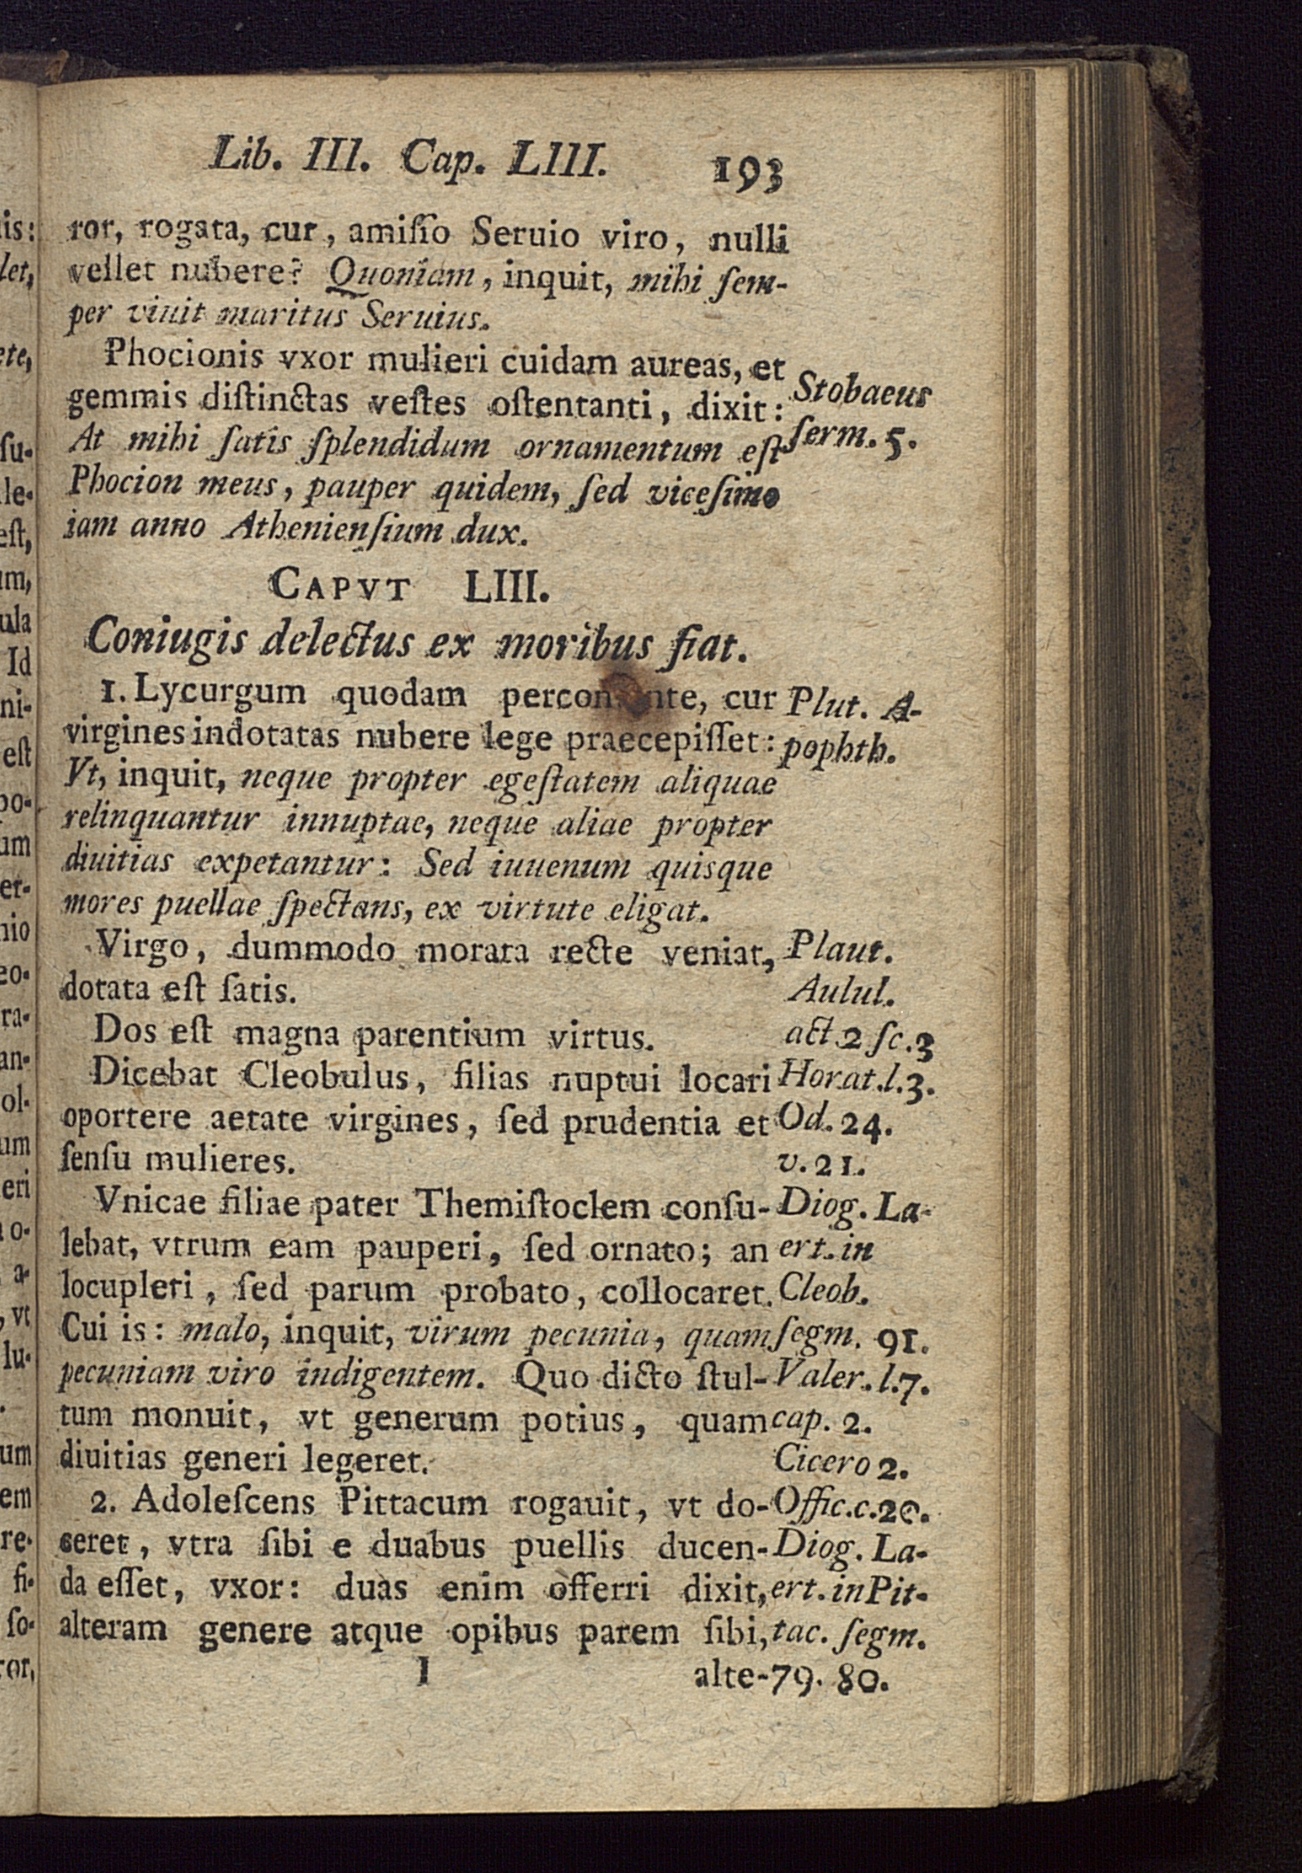 Lib. III. Cap. LIII. 193
ror, rogata, cur, amiſſo Seruio viro, nulli
vellet nubere? Quoniam, inquit, mihi ſem-
per viuit maritus Seruius.
Phocionis vxor mulieri cuidam aureas, et
gemmis diſtinctas veſtes oſtentanti, dixit:
At mihi ſatis ſplendidum ornamentum eſt
Phocion meus, pauper quidem, ſed viceſimo
iam anno Athenienſium dux.
Stobaeus
ſerm. 5.
CAPVT LIII.
Coniugis delectus ex moribus fiat.
1. Lycurgum quodam percon nte, cur
virgines indotatas nubere lege praecepiſſet:
Vt, inquit, neque propter egeſtatem aliquae
relinquantur innuptae, neque aliae propter
diuitias expetantur: Sed iuuenum quisque
mores puellae ſpectans, ex virtute eligat.
Virgo, dummodo morata recte veniat,
dotata eſt ſatis.
Dos eſt magna parentium virtus.
Dicebat Cleobulus, filias nuptui locari
oportere aetate virgines, ſed prudentia et
ſenſu mulieres.
Vnicae filiae pater Themiſtoclem conſu-
lebat, vtrum eam pauperi, ſed ornato; an
locupleti, ſed parum probato, collocaret.
Cui is: malo, inquit, virum pecunia, quam
pecuniam viro indigentem. Quo dicto ſtul-
tum monuit, vt generum potius, quam
diuitias generi legeret.
2. Adoleſcens Pittacum rogauit, vt do-
ceret, vtra ſibi e duabus puellis ducen-
da eſſet, vxor: duas enim offerri dixit,
alteram genere atque opibus parem ſibi,
I alte-
Plut. A-
pophth.
Plaut.
Aulul.
act. 2 ſc. 3
Horat. l. 3.
Od. 24.
v. 21.
Diog. La-
ert. in
Cleob.
ſegm. 91.
Valer. l. 7.
cap. 2.
Cicero 2.
Offic. c. 20.
Diog. La-
ert. in Pit-
tac. ſegm.
79. 80.